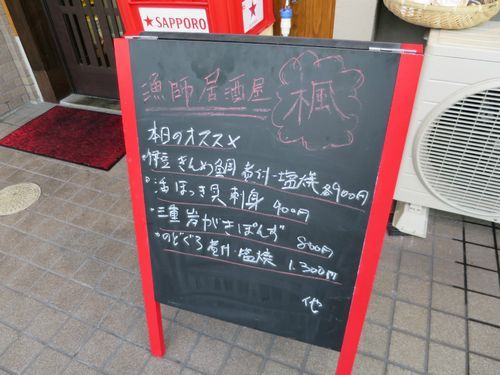 ★SAPPORO
漁師居酒屋 楓
本日のオススメ
・伊豆 きんめ鯛 煮付・塩焼 各900円
・活ほっき貝刺身 900円
・三重 岩がきぽんず 800円
・のどぐろ煮付・塩焼 1.300円
他